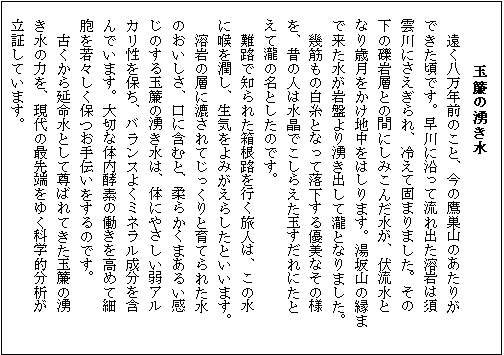 玉簾の湧き水
遠く八万年前のこと、今の鷹巣山のあたりが
できた頃です。早川に沿って流れ出た溶岩は須
雲川にさえぎられ、冷えて固まりました。その
下の礫岩層との間にしみこんだ水が、伏流水と
なり歳月をかけ地中をはしります。湯坂山の縁ま
で来た水が岩盤より湧き出して瀧となりました。
幾筋もの白糸となって落下する優美なその様
を、昔の人は水晶でこしらえた玉すだれにたと
えて瀧の名としたのです。
難路で知られた箱根路を行く旅人は、この水
に喉を潤し、生気をよみがえらしたといいます。
溶岩の層に漉されてじっくりと育てられた水
のおいしさ、口に含むと、柔らかくまあるい感
じのする玉簾の湧き水は、体にやさしい弱アル
カリ性を保ち、バランスよくミネラル成分を含
んでいます。大切な体内酵素の働きを高めて細
胞を若々しく保つお手伝いをするのです。
古くから延命水として尊ばれてきた玉簾の湧
き水の力を、現代の最先端をゆく科学的分析が
立証しています。